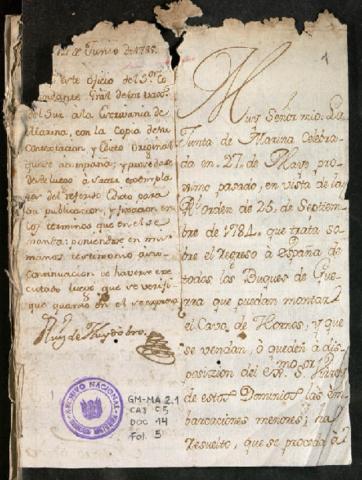 de Junio de 1785.
este Oficio del S.or Co
mandante Gral de los vaxe.
del Sur a la Escrivania de
Marina, con la Copia de su
Contextacion, y Edicto Original
que se acompaña; y para
desde luego a sacar exempla
del referido Edicto para
su publicacion, y fixacion en
los terminos que en el se
manda: poniendose en mis
manos testimonio a su
continuacion de haverse exe
cutado luego que se verifi
que quanto en el se expresa
1
Muy Señor mio: La
Junta de Marina celebra
da en 27. de Mayo pro
ximo pasado, en vista de la
R.l orden de 25. de Septiem
bre de 1784. que trata so
bre el Regreso a España de
todos los Buques de Gue
rra que puedan montar
el Cavo de Hornos, y que
se vendan, o queden a dis
posicion del
de estos Dominios las em
barcaciones menores; ha
Resuelto, que se proceda a
ARCHIVO NACIONAL
GM-MA 2.1
CAJ 55
DOC 14
Fol. 5